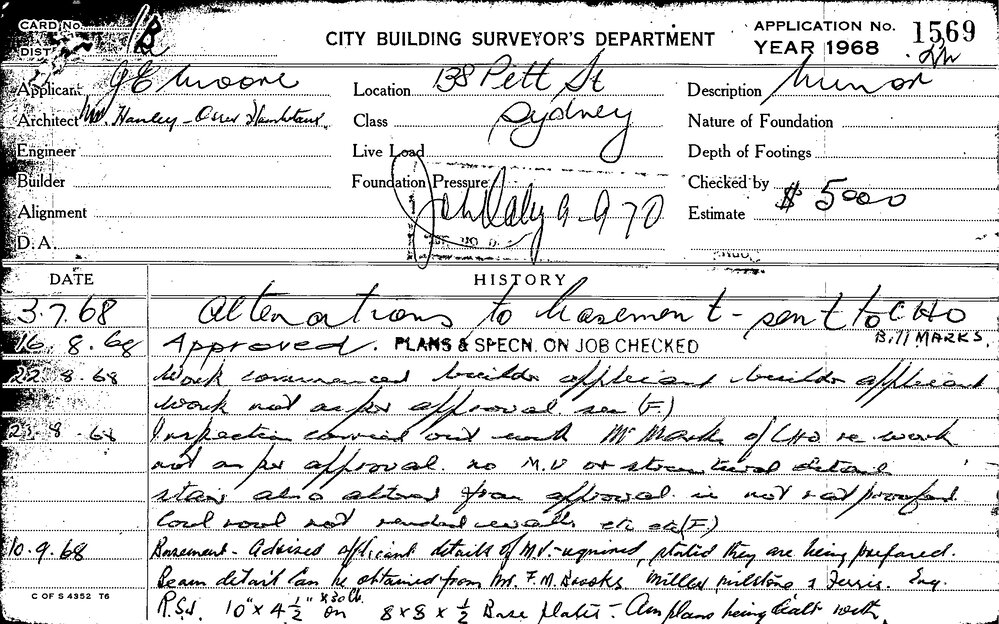 CARD No. 1B
CITY BUILDING SURVEYOR'S DEPARTMENT
APPLICATION No. 1569
DIST
YEAR 1968
Applicant G E Moore
Location 138 Pett St
Description Minor
Architect Hanley
Class Sydney
Nature of Foundation
Engineer
Live Load
Depth of Footings
Builder
Foundation Pressure
Checked by
Alignment
John Daly 9-9-70
Estimate $ 5000
D.A.
DATE
HISTORY
3.7.68 Alterations to basement - sent to CHO
Bill MARKS.
16.8.68 Approved. PLANS & SPECN. ON JOB CHECKED
22.8.68 Work commenced builder applicant builder applicant
work not as per approval see (F)
8.68 Inspection carried out with Mr Marks of CHO re work
not as per approval. no M.V or structural detail
stair also altered from approval. is not rat proofed
not rendered walls etc etc (F.)
10.9.68 Basement - Advised applicant details of M.V. required, stated they are being prepared.
Beam detail can be obtained from Mr. F. M. Brooks, Miller, Milstone & Ferris. Eng.
R.S.J. 10" x 4½" x 30lb. on 8 x 8 x ½ Base plates - Am plans being dealt with
C OF S 4352 T6